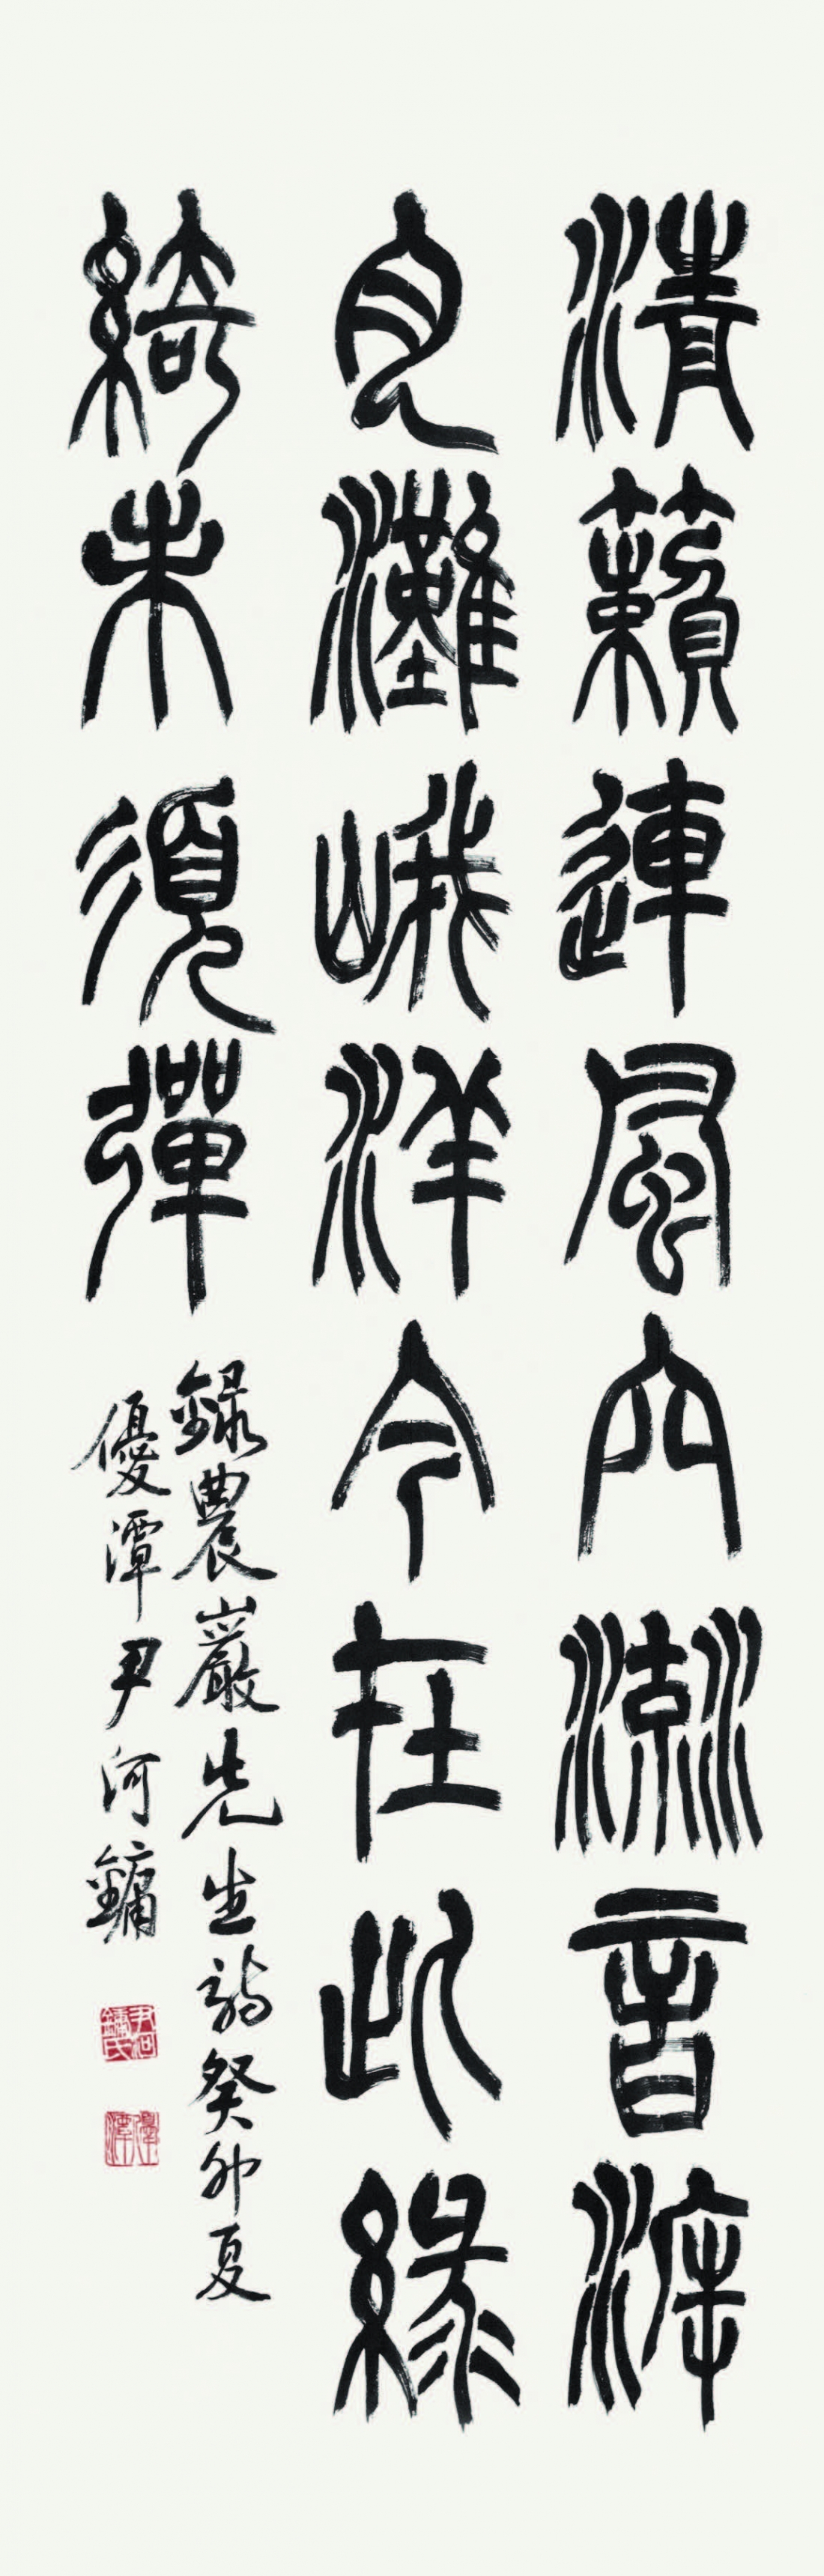 清籟連風穴音
見灘峨洋今在此綠
綺未須彈
錄農巖先生詩癸卯夏
優潭尹河鏞
尹河鏞氏
優潭